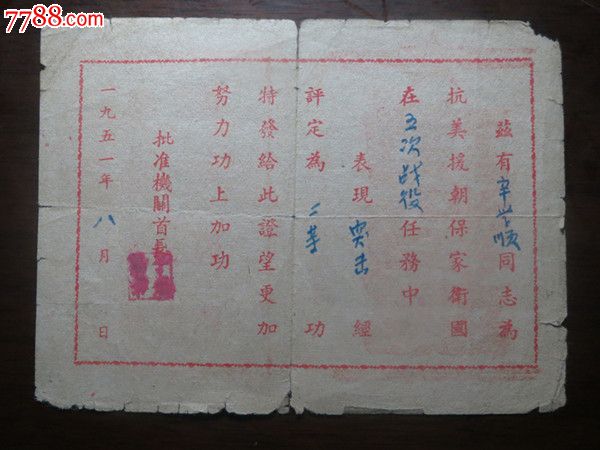 7788.com
茲有辛学順同志為
抗美援朝保家衛國
在五次战役任務中
表現突击經
評定為二等功
特發給此證望更加
努力功上加功
批准機關首長
一九五一年八月日